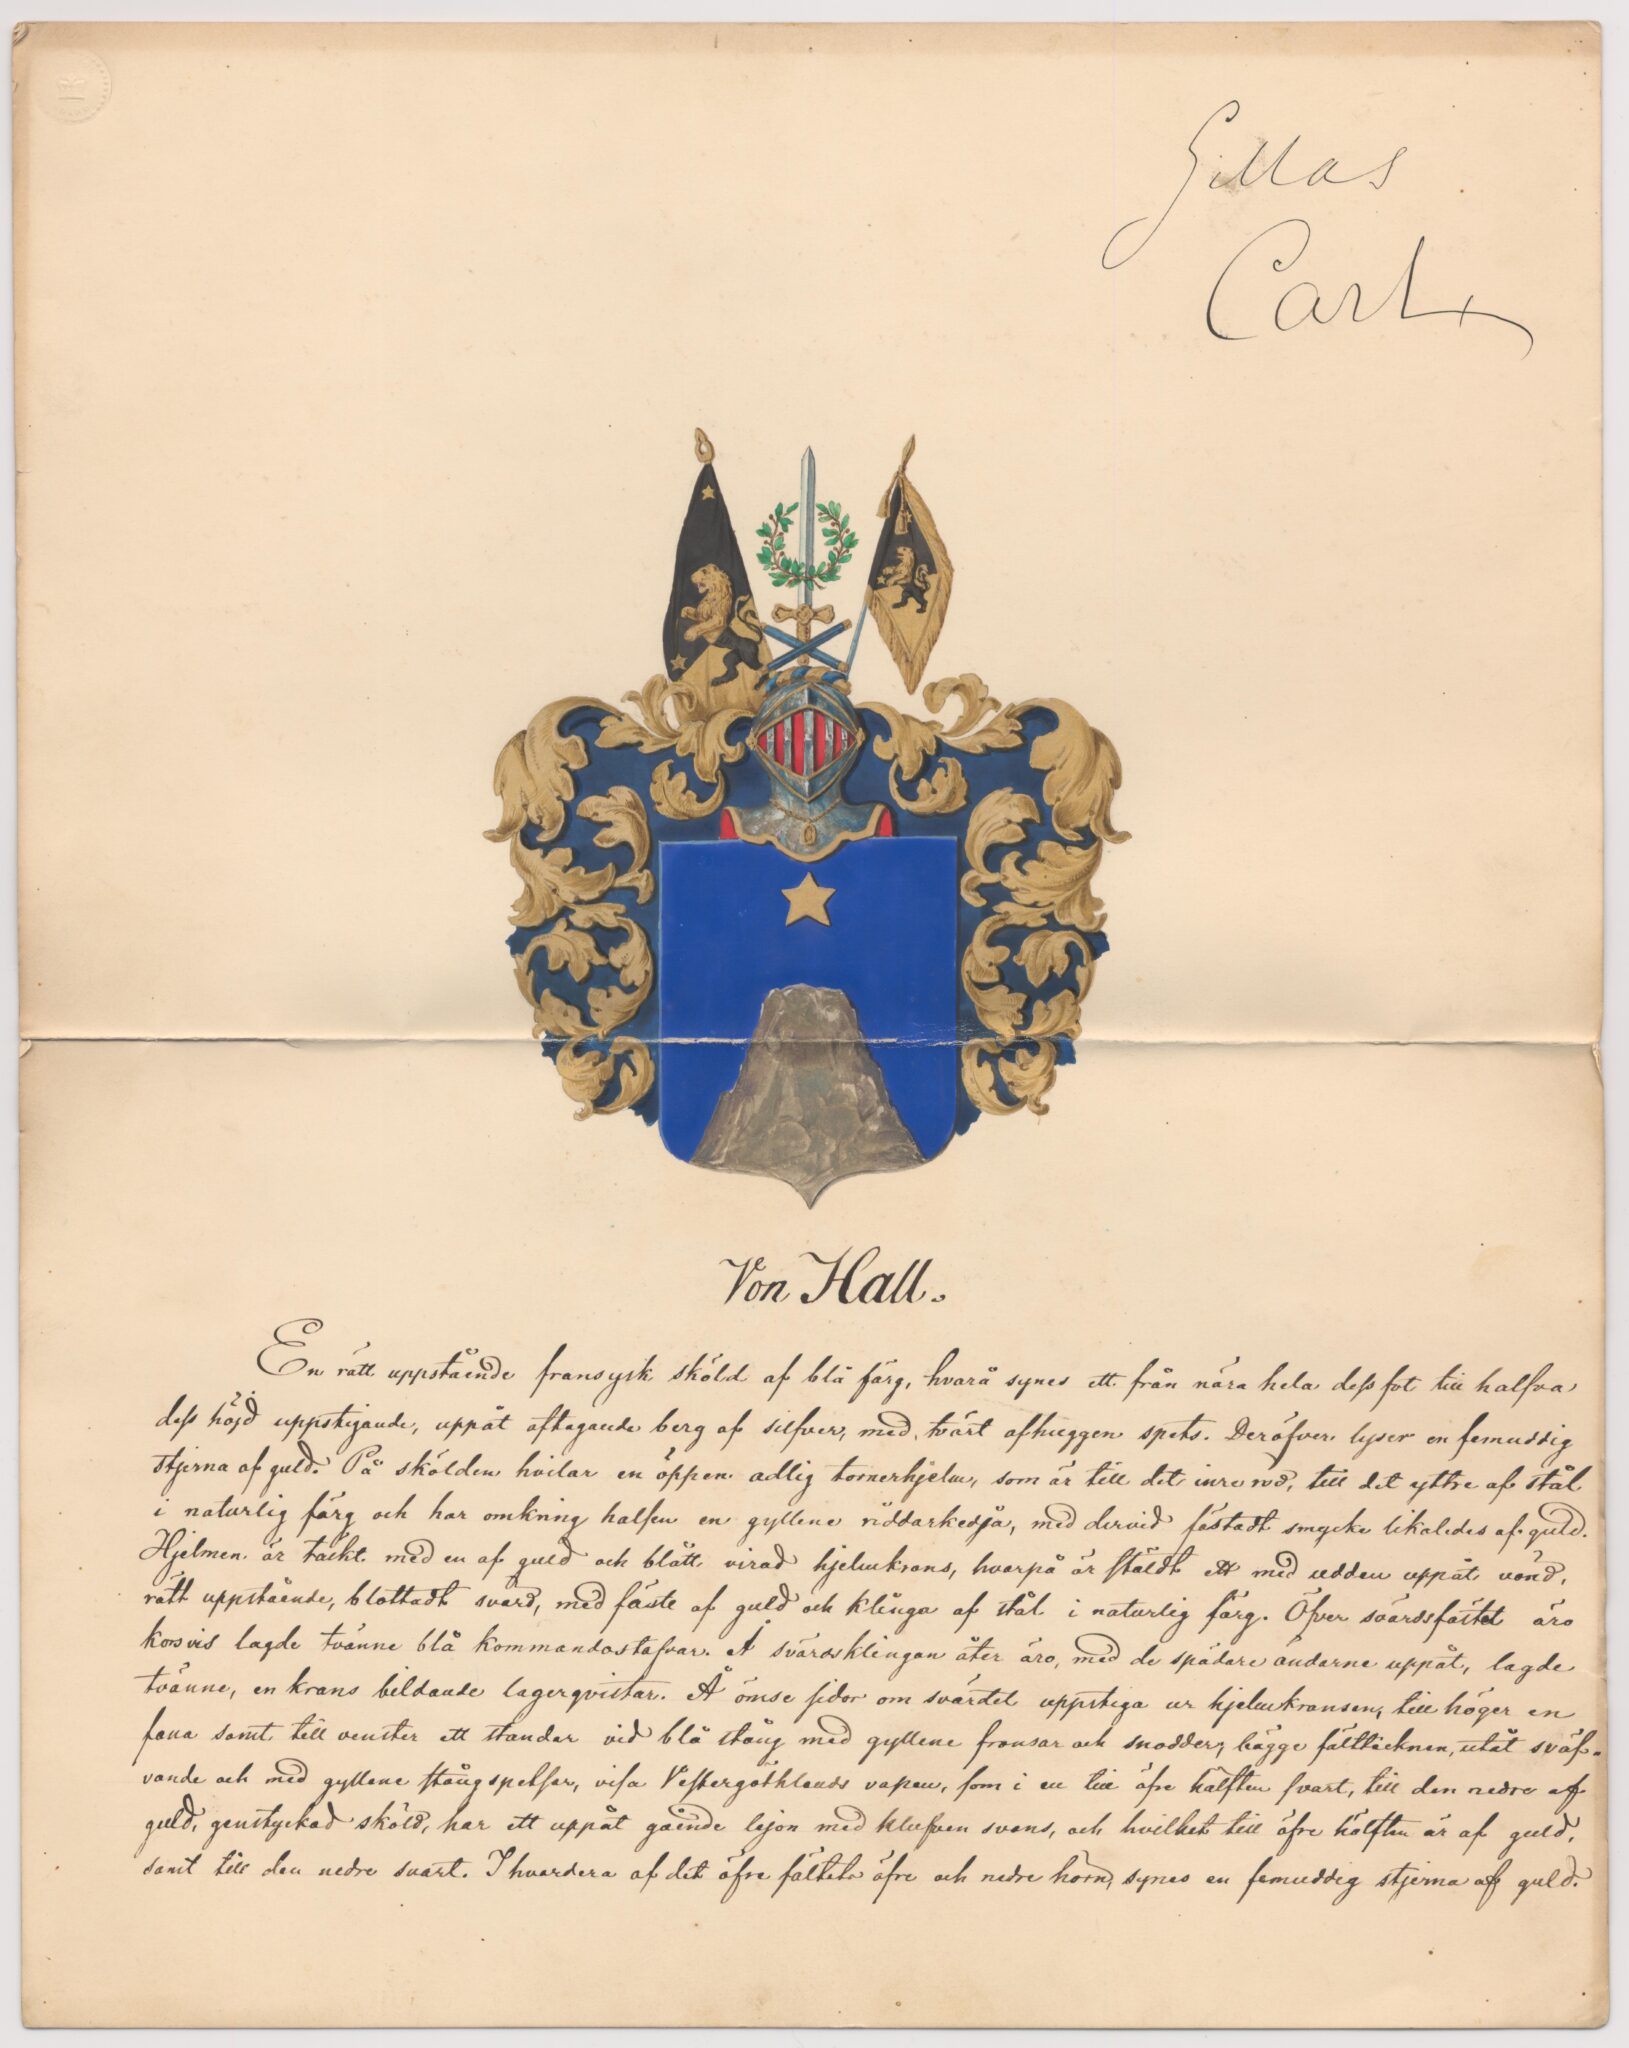 Gillas
Carl
Von Hall.
En rätt uppstående fransysk sköld af blå färg, hvarå synes ett från nära hela dess fot till halfva
dess höjd uppstigande, uppåt aftagande berg af silfver, med tvärt afhuggen spets. Deröfver lyser en femuddig
stjerna af guld. På skölden hvilar en öppen adlig tornerhjelm, som är till det inre röd, till det yttre af stål
i naturlig färg och har omkring halsen en gyllene riddarkedja, med dervid fästadt smycke likaledes af guld.
Hjelmen är täckt med en af guld och blått virad hjelmkrans, hvarpå är stäldt ett med udden uppåt vänd,
rätt uppstående, blottadt svärd, med fäste af guld och klinga af stål i naturlig färg. Öfver svärdsfästet äro
korsvis lagde tvänne blå kommandostafvar. Å svärdsklingan åter äro, med de spädare ändarne uppåt, lagde
tvänne, en krans bildande lagerqvistar. Å ömse sidor om svärdet uppstiga ur hjelmkransen, till höger en
fana samt till venster ett standar vid blå stång med gyllene fransar och snodder; bägge fälttecknen, utåt sväf-
vande och med gyllene stångspetsar, visa Vestergöthlands vapen, som i en till öfre hälften svart, till den nedre af
guld, genstyckad sköld, har ett uppåt gående lejon med klufven svans, och hvilket till öfre hälften är af guld,
samt till den nedre svart. I hvardera af det öfre fältets öfre och nedre hörn, synes en femuddig stjerna af guld.